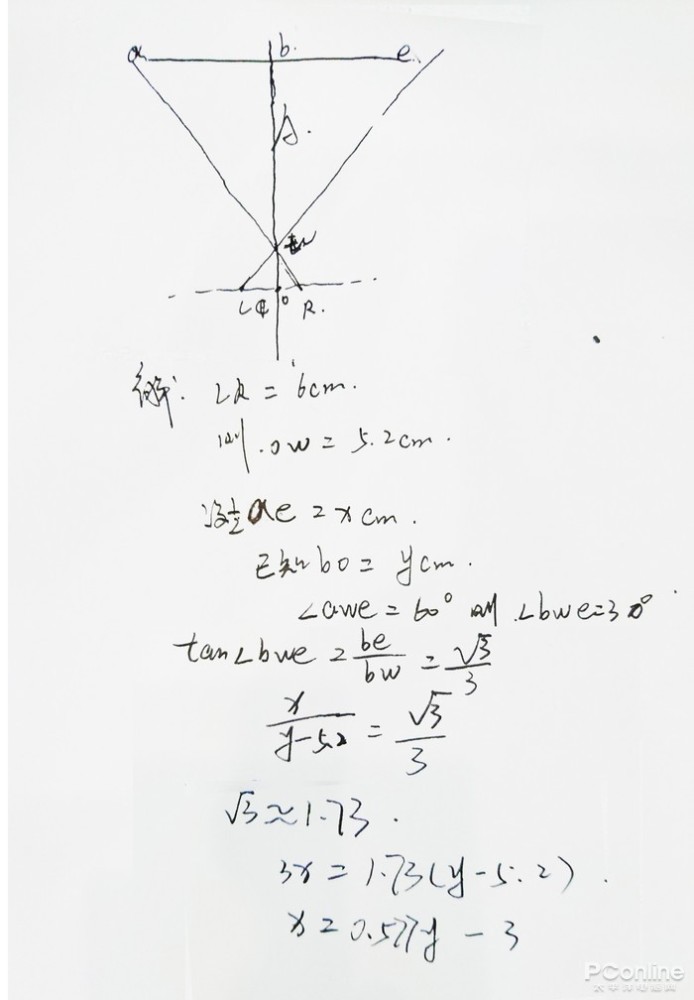 a b. e
w
L O R.
解: LR = 6cm.
则.ow = 5.2cm.
设ae = xcm.
已知bo = ycm.
∠awe = 60° 则.∠bwe=30°
tan∠bwe = be/bw = √3/3
x/(y-5.2) = √3/3
√3≈1.73.
3x = 1.73(y-5.2).
x = 0.577y - 3
PConline
太平洋电脑网